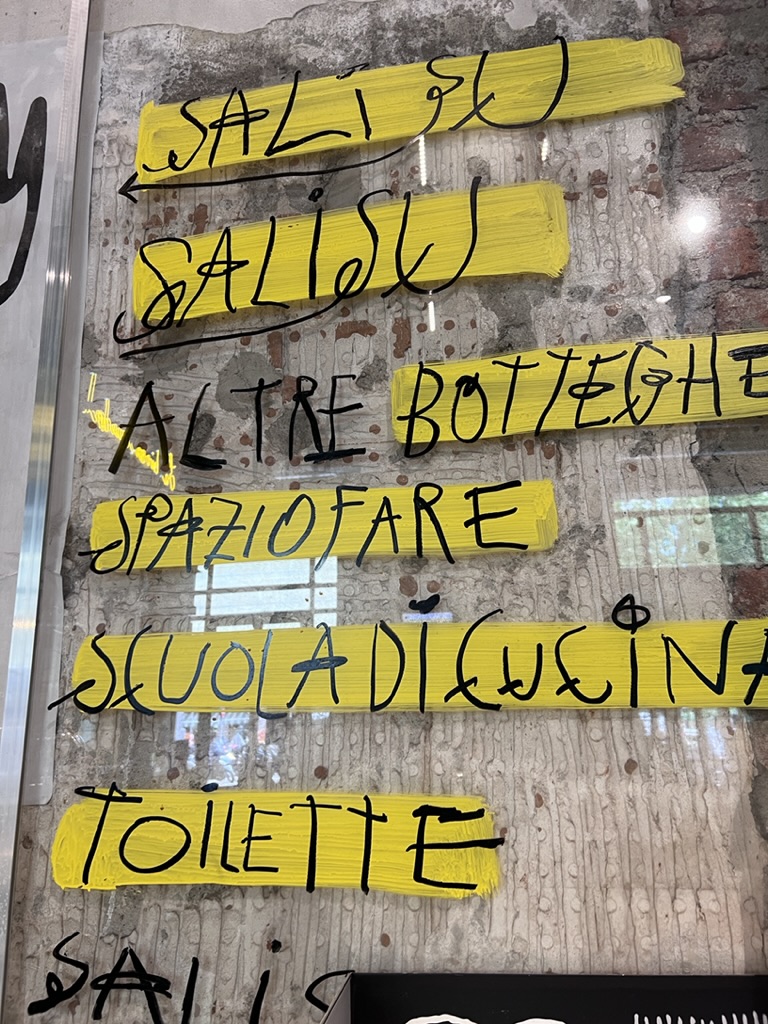 SALi SU
SALiSU
ALTRE BOTTEGHE
SPAZIOFARE
SCUOLA Di CUCiNA
TOILETTE
SALi